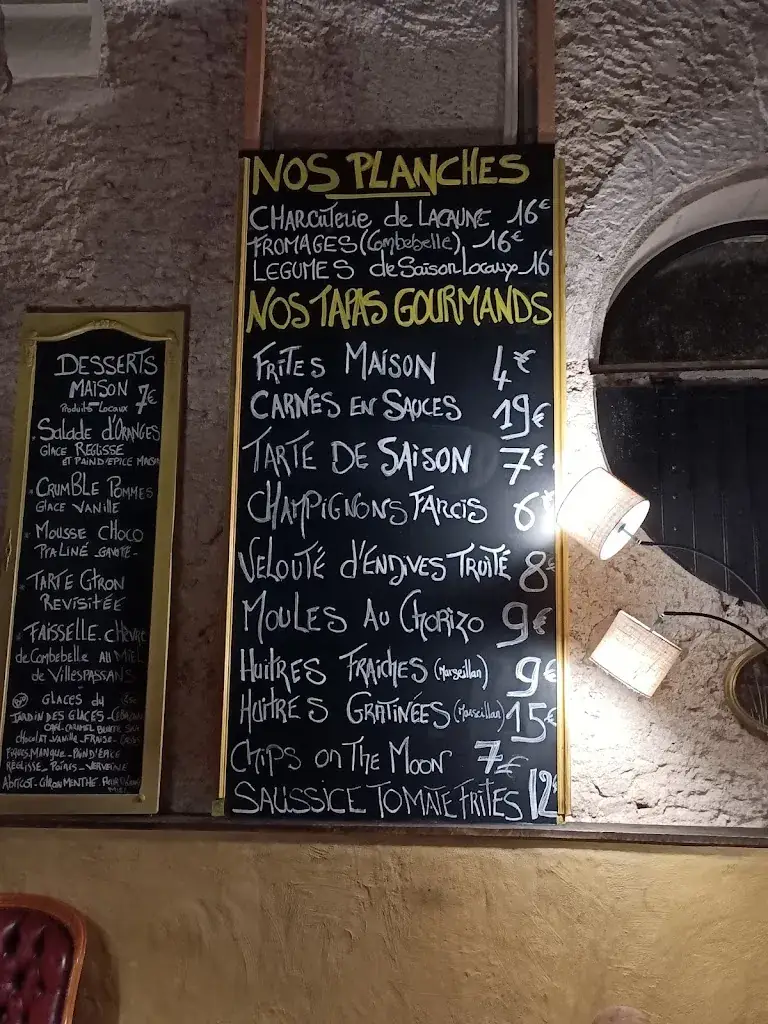 NOS PLANCHES
CHARCUTERIE de LACAUNE 16€
FROMAGES (Combebelle), 16€
LEGUMES de Saison Locaux 16
NOS TAPAS GOURMANDS
FRITES MAISON 4€
CARNES EN SAUCES 19€
TARTE DE SAISON 7€
CHAMPIGNONS FARCIS 6€
VELOUTÉ d'ENDIVES TRUITÉ 8€
MOULES AU CHORIZO 9€
HUITRES FRAICHES (Marseillan) 9€
HUITRES GRATINÉES (Marseillan) 15€
CHIPS ON THE MOON 7€
SAUSSICE TOMATE FRITES 12
DESSERTS
MAISON 7€
Produits Locaux
Salade d'ORANGES
GLACE REGLISSE
ET PAIN D'EPICE MAISON
CRUMBLE POMMES
GLACE VANILLE
MOUSSE CHOCO
PRALINÉ - GAVOTTE -
TARTE CITRON
REVISITÉE
FAISSELLE CHÈVRE
de Combebelle AU MIEL
de VILLESPASSANS
GLACES du
JARDIN DES GLACES -
CAFÉ - CARAMEL BEURRE SALÉ
CHOCOLAT - VANILLE - FRAISE -
FIGUES, MANGUE - PAIN D'EPICE
RÉGLISSE - POIRES - VERVEINE
ABRICOT - CITRON MENTHE -